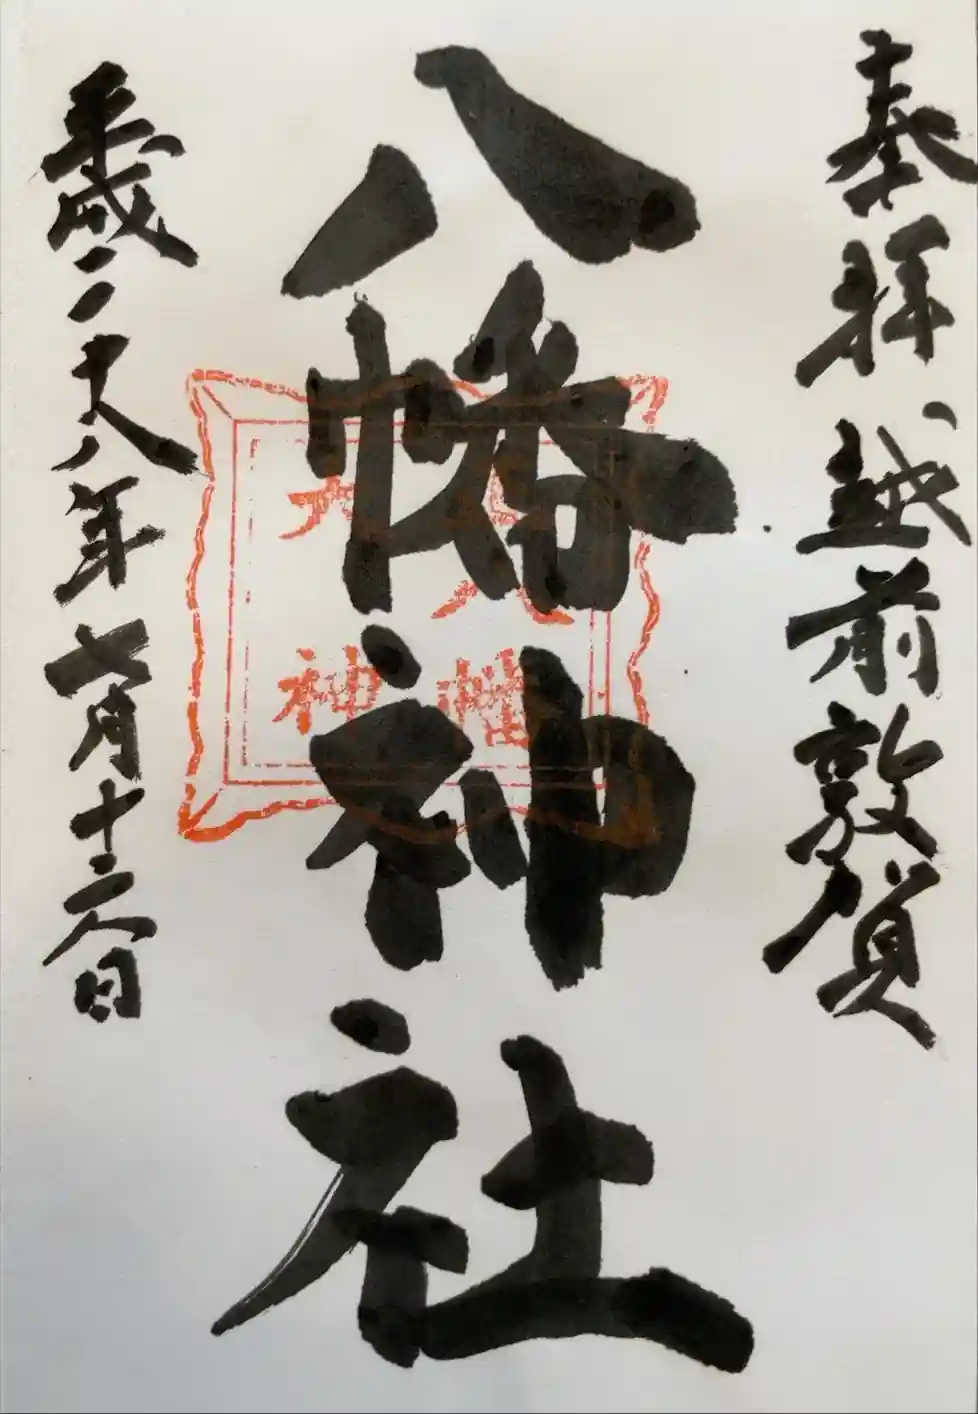 奉拝 越前敦賀
八幡神社
平成二十八年七月十六日
八幡
大神